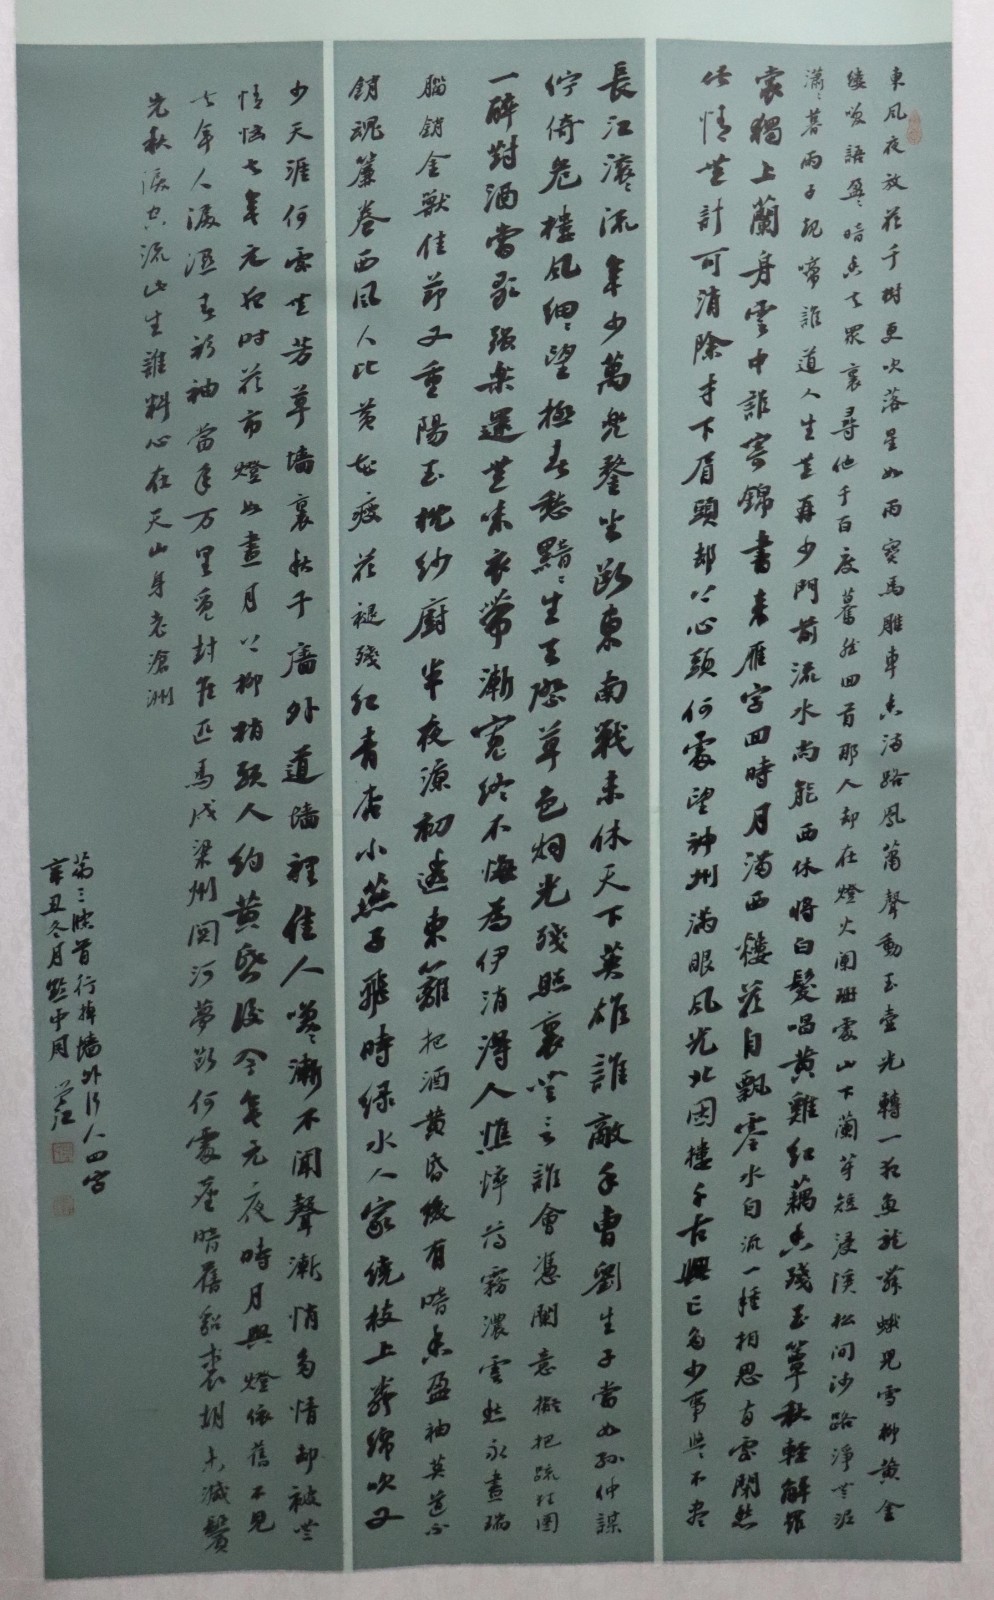 東風夜放花千樹更吹落星如雨寶馬雕車香滿路鳳簫聲動玉壺光轉一夜魚龍舞蛾兒雪柳黃金
縷笑語盈盈暗香去眾裏尋他千百度驀然回首那人却在燈火闌珊處山下蘭芽短浸溪松間沙路淨無泥
瀟瀟暮雨子規啼誰道人生無再少門前流水尚能西休將白髮唱黃雞紅藕香殘玉簟秋輕解羅
裳獨上蘭舟雲中誰寄錦書來雁字回時月滿西樓花自飄零水自流一種相思兩處閑愁
此情無計可消除才下眉頭却上心頭何處望神州滿眼風光北固樓千古興亡多少事悠悠不盡
長江滾滾流年少萬兜鍪坐斷東南戰未休天下英雄誰敵手曹劉生子當如孫仲謀
佇倚危樓風細細望極春愁黯黯生天際草色烟光殘照裏無言誰會憑闌意擬把疏狂圖
一醉對酒當歌强樂還無味衣帶漸寬終不悔為伊消得人憔悴薄霧濃雲愁永晝瑞
腦銷金獸佳節又重陽玉枕紗廚半夜涼初透東籬把酒黃昏後有暗香盈袖莫道不
銷魂簾卷西風人比黃花瘦花褪殘紅青杏小燕子飛時綠水人家繞枝上柳綿吹又
少天涯何處無芳草墻裏秋千墻外道墻裡佳人笑笑漸不聞聲漸悄多情却被無
情惱去年元夜時花市燈如晝月上柳梢頭人約黃昏後今年元夜時月與燈依舊不見
去年人淚濕春衫袖當年万里覓封侯匹馬戍梁州關河夢斷何處塵暗舊貂裘胡未滅鬢
先秋淚空流此生誰料心在天山身老滄洲
第三隊首行掉墻外行人四字
辛丑冬月